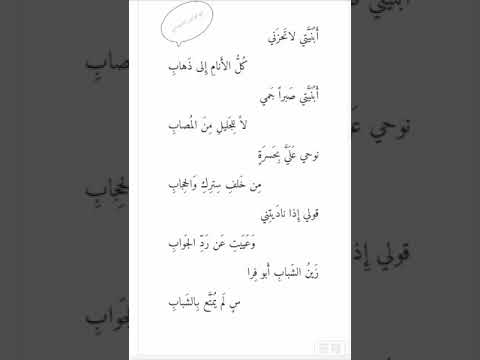 أَبُنَيَّتي لا تَحزَني
كُلُّ الأَنامِ إِلى ذَهابِ
أَبُنَيَّتي صَبراً جَمي
لاً لِلجَليلِ مِنَ المُصابِ
نوحي عَلَيَّ بِحَسرَةٍ
مِن خَلفِ سِترِكِ وَالحِجابِ
قولي إِذا نادَيتِني
وَعَيَيتِ عَن رَدِّ الجَوابِ
زَينُ الشَبابِ أَبو فِرا
سٍ لَم يُمَتَّع بِالشَبابِ